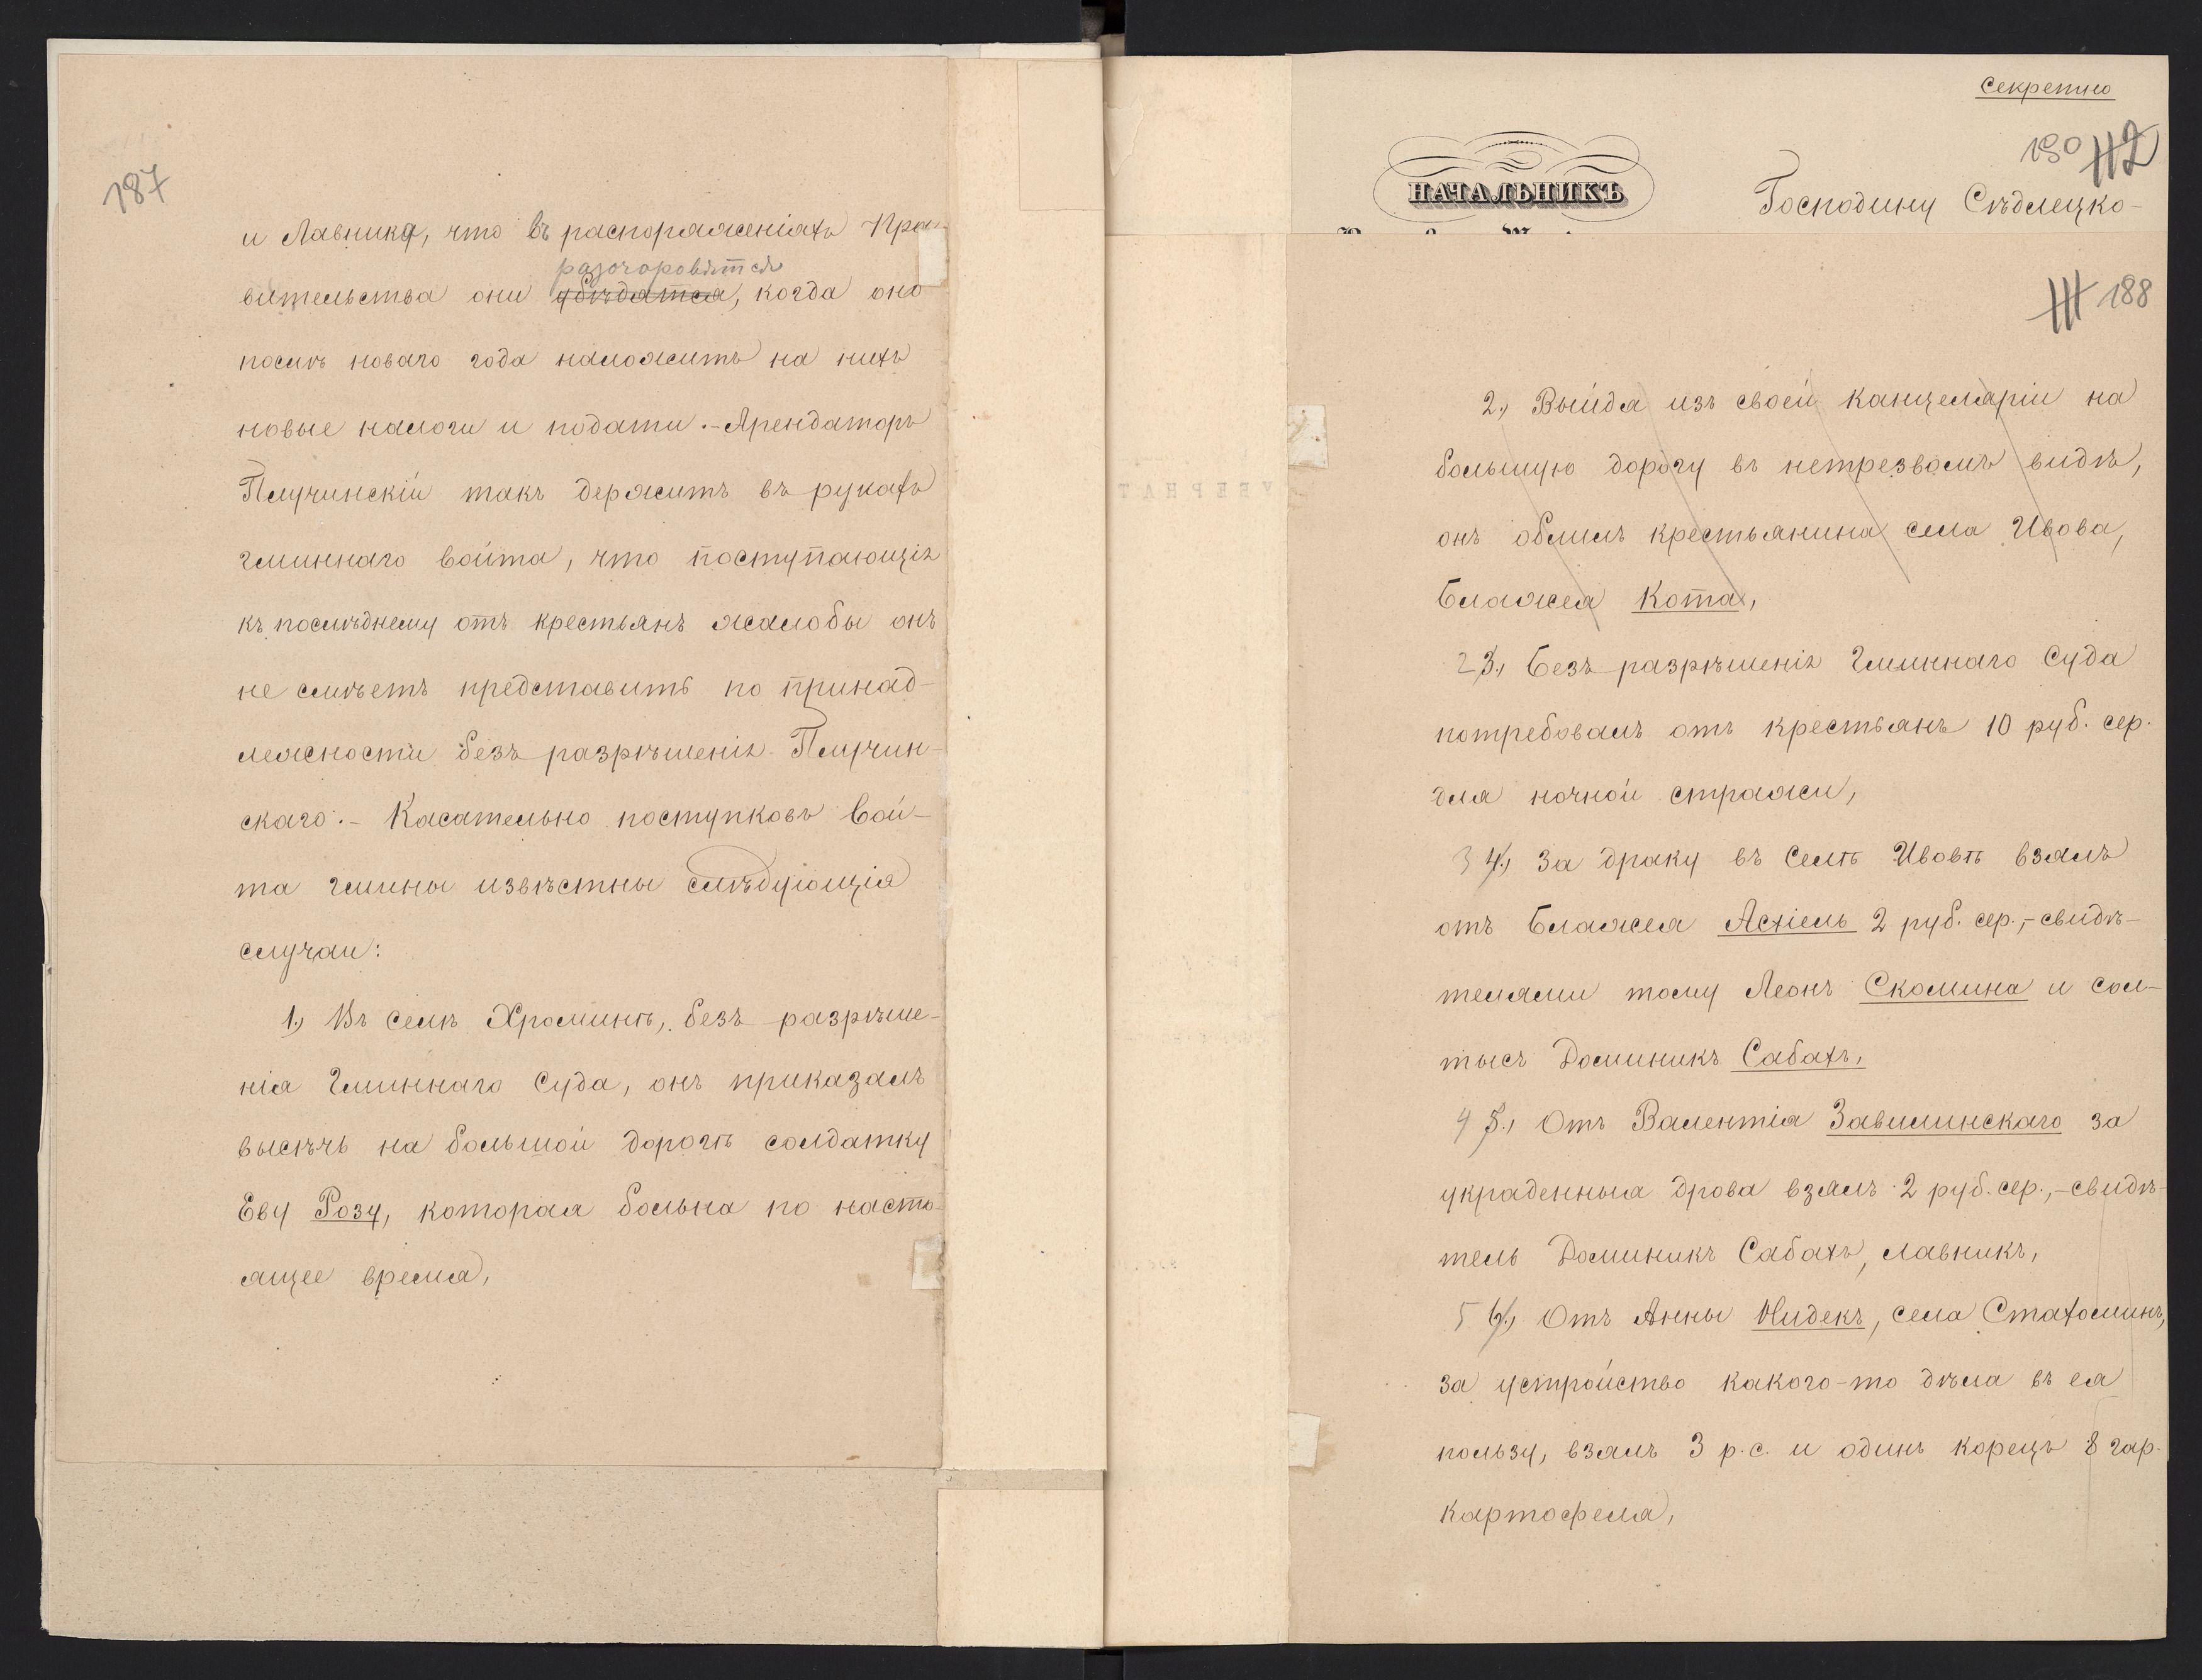 187
и Лавника, что въ распоряженіяхъ Пра-
разочаровятся
вительства они убѣдятся, когда оно
послѣ новаго года наложитъ на нихъ
новые налоги и подати.- Арендаторъ
Плучинскій такъ держитъ въ рукахъ
гминнаго войта, что поступающія
къ послѣднему отъ крестьянъ жалобы онъ
не смѣетъ представить по принад-
лежности безъ разрѣшенія Плучин-
скаго.- Касательно поступковъ Вой-
та гмины извѣстны слѣдующія
случаи:
1., Въ селѣ Хроминѣ, безъ разрѣше-
нія Гминнаго Суда, онъ приказалъ
высѣчь на большой дорогѣ солдатку
Еву Розу, которая больна по насто-
ящее время,
Секретно
190 112
НАЧАЛЬНИКЪ
Господину Сѣдлецко-
111 188
2., Выйдя изъ своей канцеляріи на
большую дорогу въ нетрезвомъ видѣ,
онъ облилъ крестьянина села Ивова,
Блажея Кота,
2 3., Безъ разрѣшенія Гминнаго Суда
потребовалъ отъ крестьянъ 10 руб. сер.
для ночной стражи,
3 4., За драку въ Селѣ Ивовѣ взялъ
отъ Блажея Ахіель 2 руб. сер.,- свидѣ-
телями тому Леонъ Скомина и сол-
тысъ Доминикъ Сабатъ,
4 5., Отъ Валентія Завилинскаго за
украденныя дрова взялъ 2 руб. сер.,- свидѣ-
тель Доминикъ Сабатъ, лавникъ,
5 6., Отъ Анны Индекъ, села Стахоминъ,
за устройство какого-то дѣла въ ея
пользу, взялъ 3 р.с. и одинъ корецъ 8 гар.
картофеля,